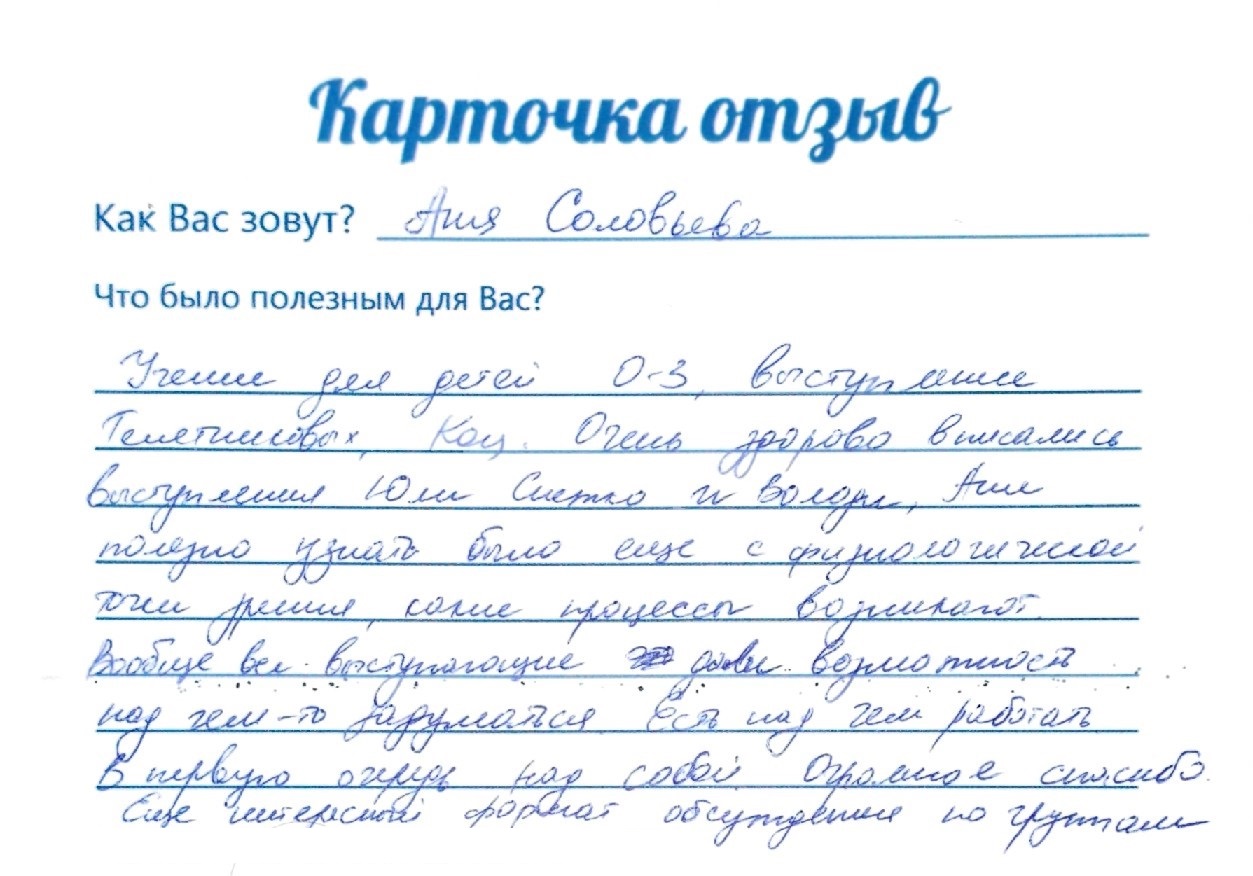 Карточка отзыв
Как Вас зовут? Аня Соловьева
Что было полезным для Вас?
Учение для детей 0-3, выступление
Телетниковых, Кац. Очень здорово вписались
выступления Юли Снежко и Володи, Ане
полезно узнать было еще с физиологической
точки зрения, какие процессы возникают.
Вообще все выступающие дали возможность
над чем-то задуматься. Есть над чем работать
В первую очередь над собой. Огромное спасибо.
Еще интересный формат обсуждения по группам